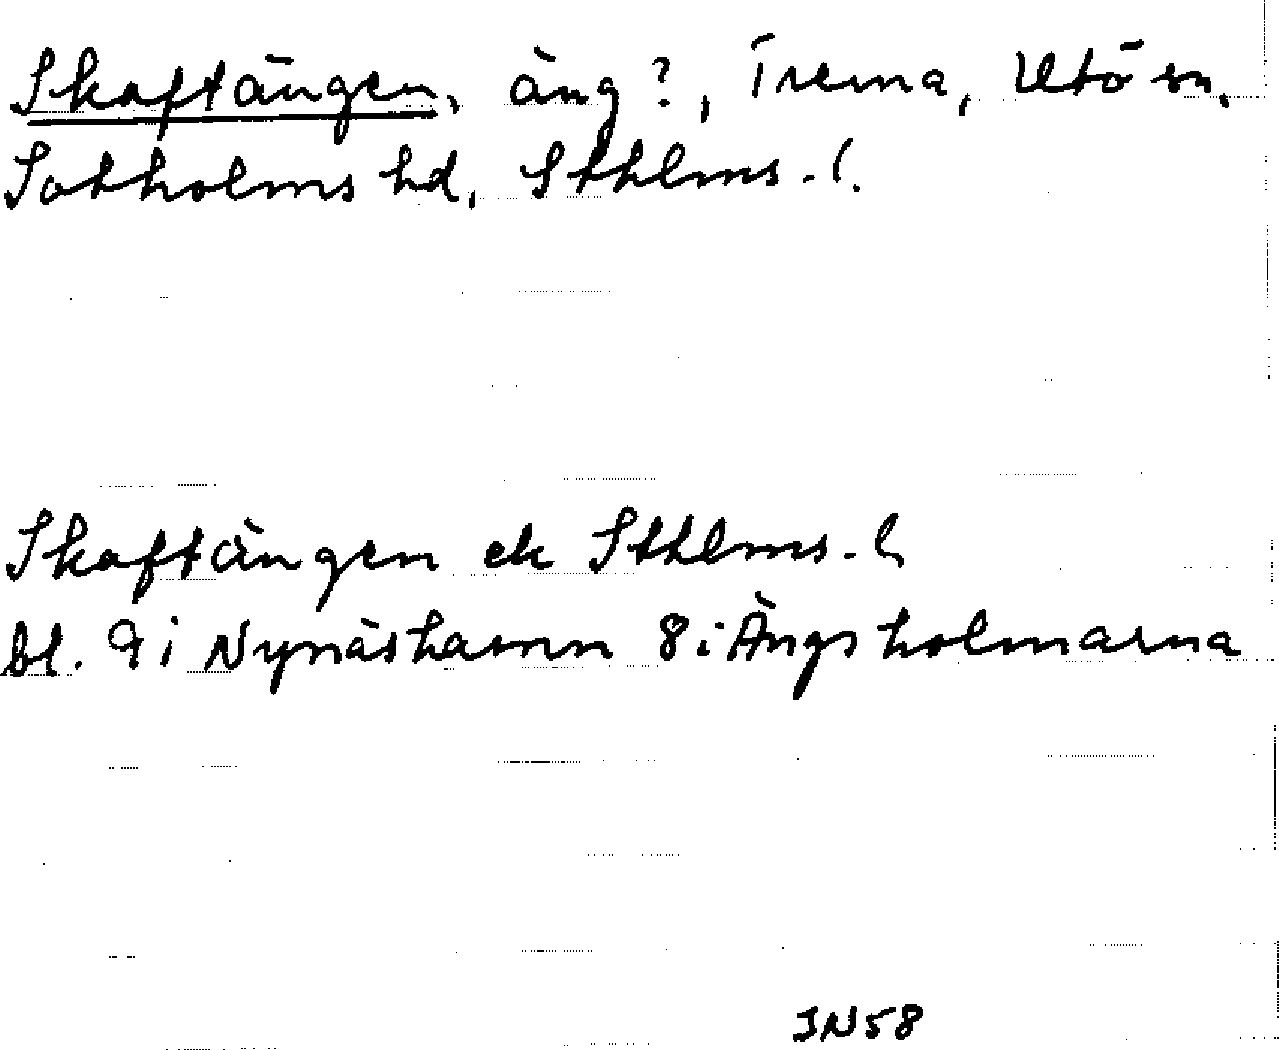 Skaftängen, äng?, Trema, Utö sn,
Sotholms hd, Sthlms. l.
Skaftängen ek Sthlms. l
bl. 9 i Nynäshamn 8 i Ängsholmarna
JN58